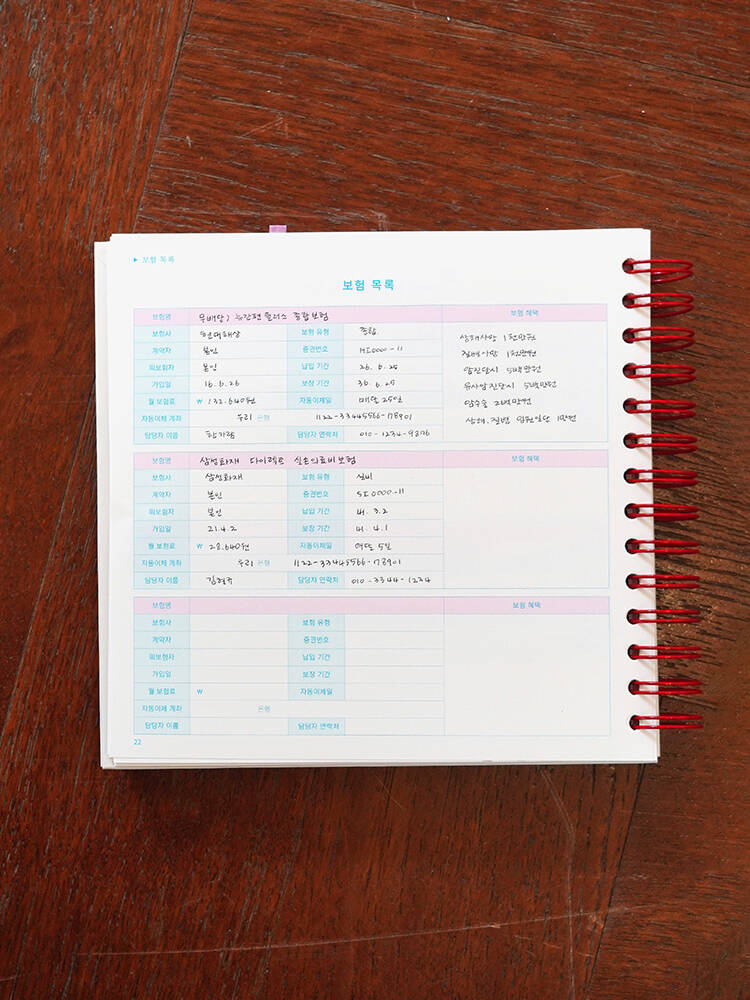 ▶ 보험 목록
보험 목록
보험명 무배당) 뉴간편플러스 종합보험 보험 혜택
보험사 현대해상 보험 유형 종합
계약자 본인 증권번호 HI0000-11
피보험자 본인 납입 기간 26. 6. 25
가입일 16. 6. 26 보장 기간 36. 6. 25
월 보험료 ₩ 132.640원 자동이체일 매달 25일
자동이체 계좌 우리 은행 1122-33445566-178901
담당자 이름 한가람 담당자 연락처 010-1234-9876
상해사망 1천만원
질병사망 1천만원
암진단시 5백만원
유사암진단시 5백만원
암수술 2백만원
상해.질병 입원일당 1만원
보험명 삼성화재 다이렉트 실손의료비보험 보험 혜택
보험사 삼성화재 보험 유형 실비
계약자 본인 증권번호 SI0000-11
피보험자 본인 납입 기간 41. 3. 2
가입일 21. 4. 2 보장 기간 41. 4. 1
월 보험료 ₩ 28.640원 자동이체일 매달 5일
자동이체 계좌 우리 은행 1122-33445566-178901
담당자 이름 담당자 연락처 010-3344-1234
보험명 보험 혜택
보험사 보험 유형
계약자 증권번호
피보험자 납입 기간
가입일 보장 기간
월 보험료 ₩ 자동이체일
자동이체 계좌 은행
담당자 이름 담당자 연락처
22